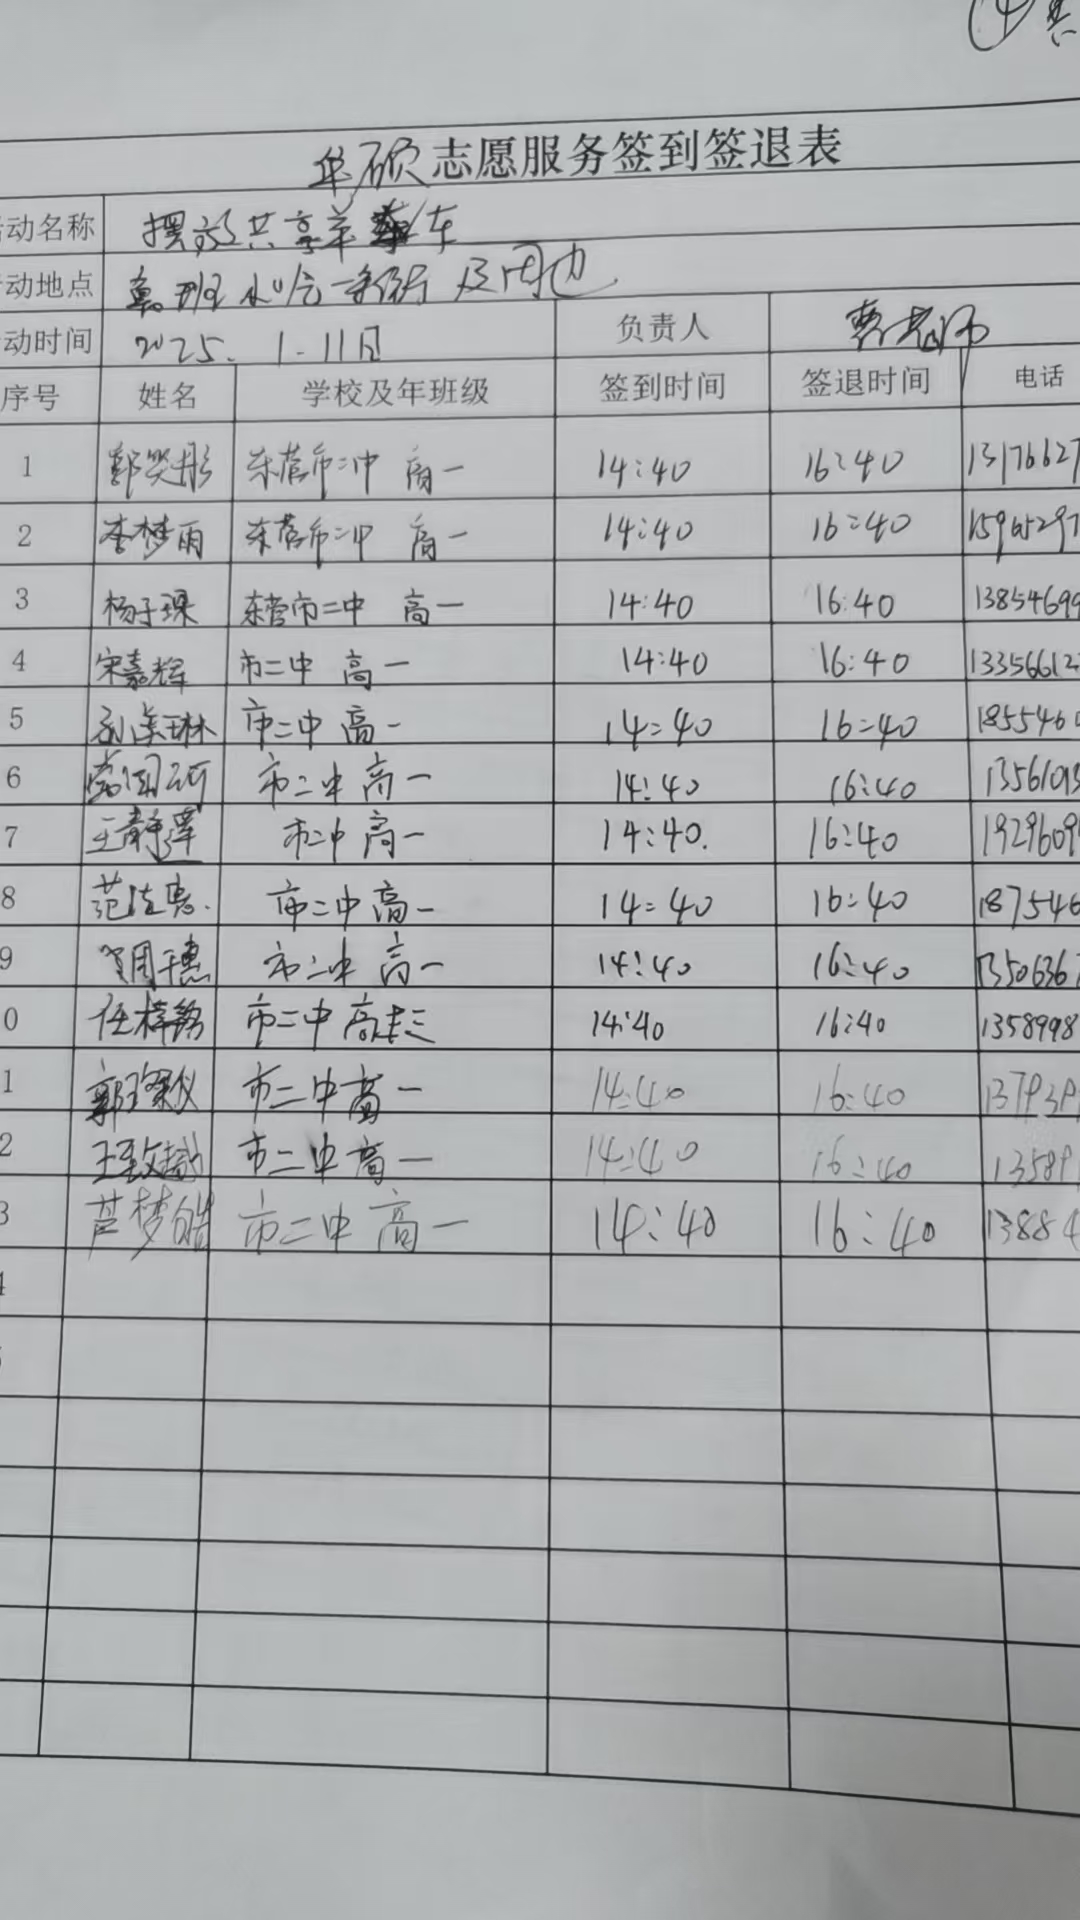 华硕志愿服务签到签退表
活动名称 摆放共享单车
动地点 及周边
动时间 2025.1.11日 负责人 曹老师
序号 姓名 学校及年班级 签到时间 签退时间 电话
1 郭笑彤 东营市二中 高一 14:40 16:40 13176627
2 李梦雨 东营市二中 高一 14:40 16:40 15965297
3 杨子琛 东营市二中 高一 14:40 16:40 13854699
4 宋嘉辉 市二中 高一 14:40 16:40 13356612
5 市二中 高一 14:40 16:40 1855460
6 市二中 高一 14:40 16:40 1356109
7 王静莲 市二中 高一 14:40. 16:40 1929609
8 市二中 高一 14:40 16:40 187546
9 市二中 高一 14:40 16:40 1350636
0 任梓铭 市二中 14:40 16:40 1358998
1 市二中 高一 14:40 16:40 137939
2 市二中 高一 14:40 16:40 13589
3 芦梦皓 市二中 高一 14:40 16:40 13884